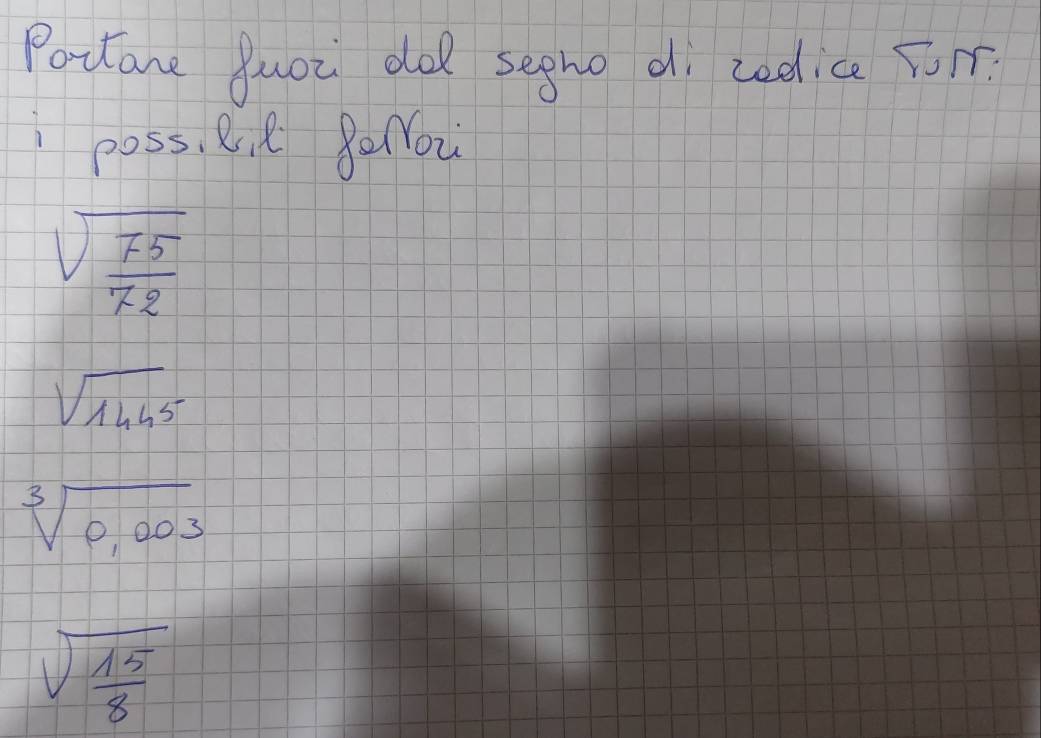 Portare fuori dal segno di radice tutti
i possibili fattori
√75/72
√1445
³√0,003
√15/8